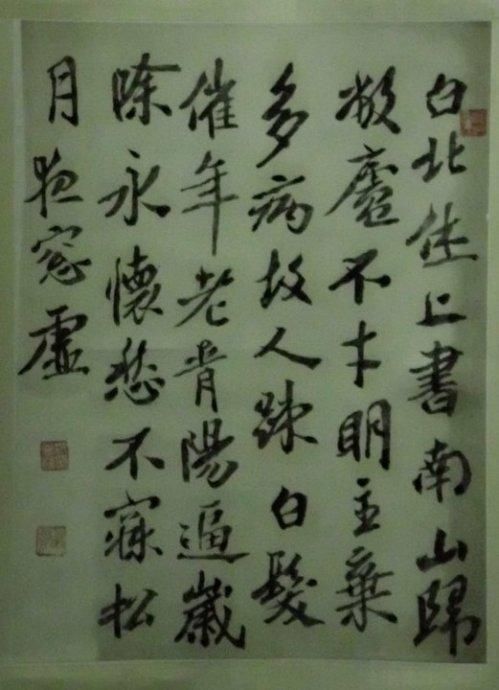 白北上書南山歸
敝廬不才明主棄
多病故人踈白髮
催年老青陽逼歲
除永懷愁不寐松
月夜窓虛